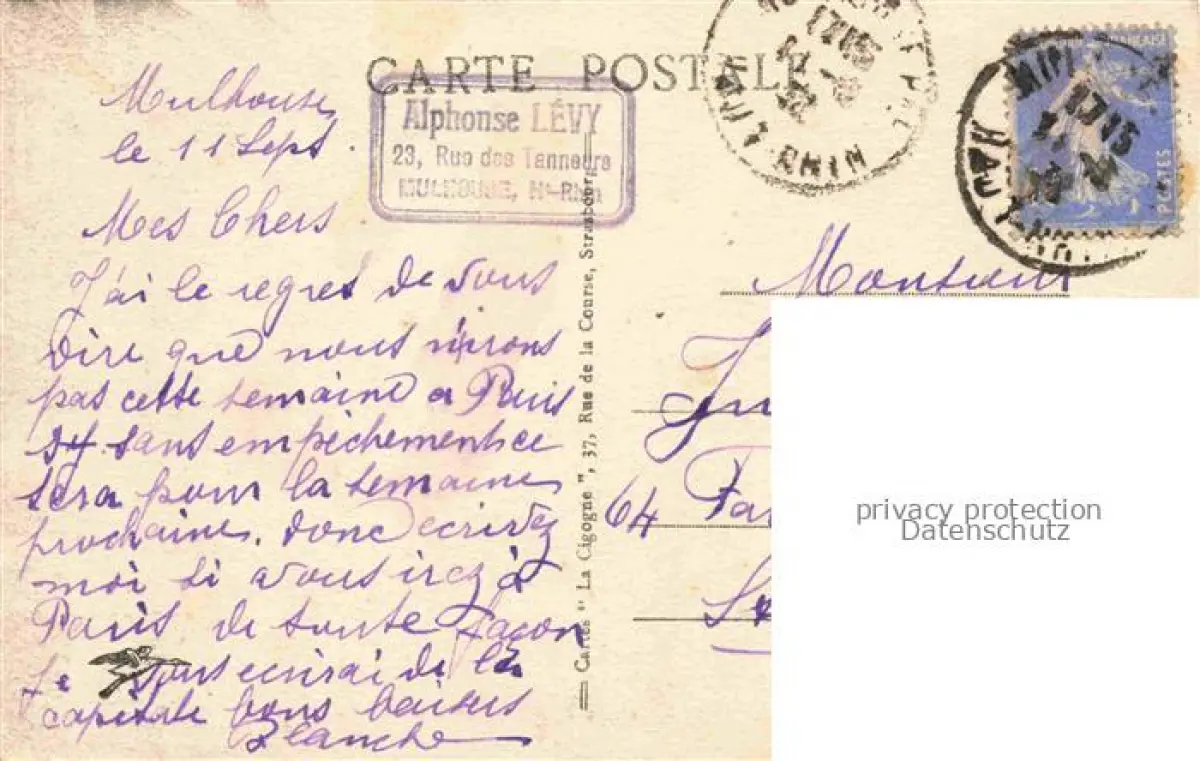 CARTE POSTALE
Alphonse LÉVY
23, Rue des Tanneurs
MULHOUSE, Ht-Rhin
Mulhouse
le 11 Sept.
Mes Chers
J'ai le regret de vous
dire que nous n'irons
pas cette semaine a Paris
sans empêchement ce
sera pour la semaine
prochaine. donc ecrivez
moi si vous irez à
Paris de toute façon
je vous ecrirai de la
capitale bons baisers
Blanche
Cartes " La Cigogne ", 37, Rue de la Course, Strasbourg
RHIN
17 15
POSTES
Monsieur
64
privacy protection
Datenschutz